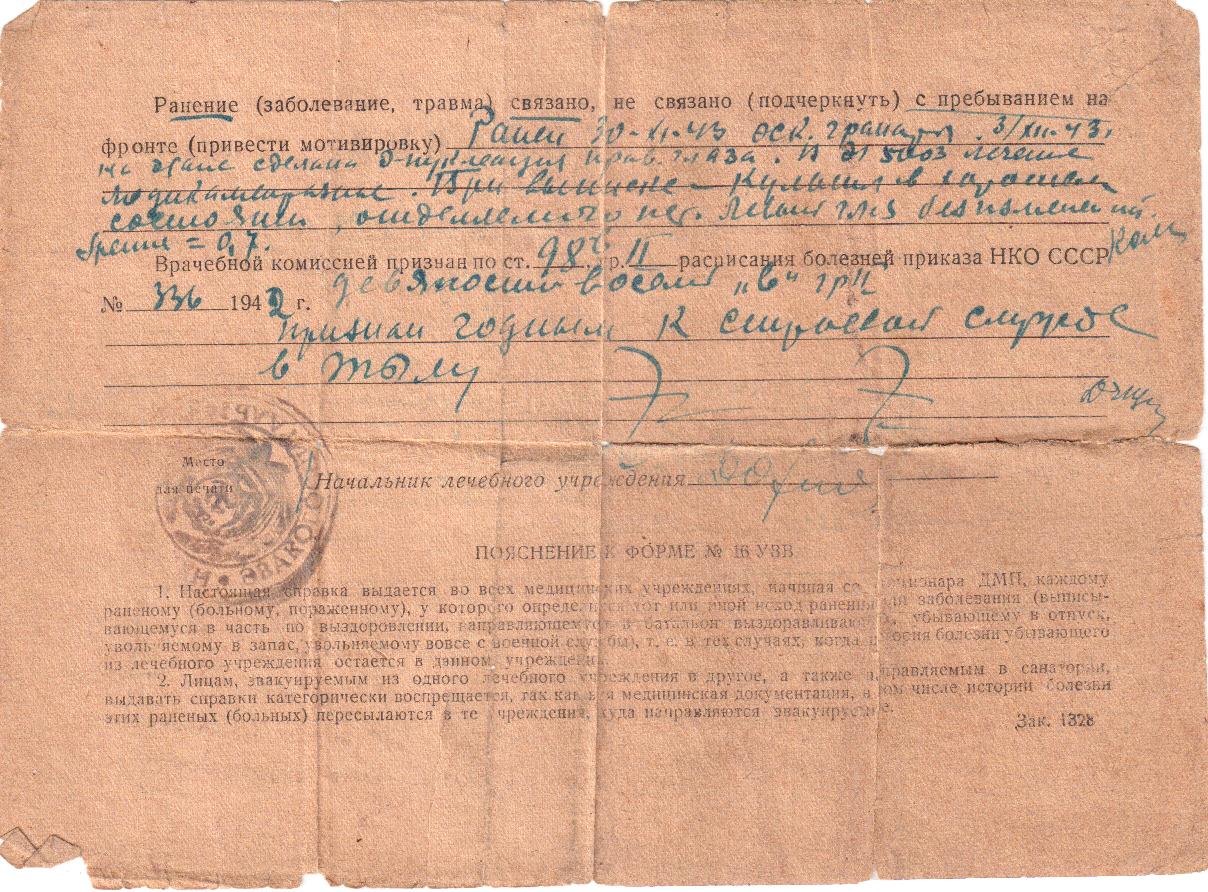 Ранение (заболевание, травма) связано, не связано (подчеркнуть) с пребыванием на
фронте (привести мотивировку) Ранен 30-XI-43 оск. гранаты. 3/XII-43
на этапе сделана энуклеация прав. глаза. В лечение
медикаментозное. При выписке - Культя в хорошем
состоянии, отделяемого нет. Левый глаз без изменений.
Зрение = 0,7.
Врачебной комиссией признан по ст. 98 гр. II расписания болезней приказа НКО СССР
№ 336 1942 г. девяносто восемь „в“ гр II
признан годным к строевой службе
в тылу
Место
для печати
Начальник лечебного учреждения
ПОЯСНЕНИЕ К ФОРМЕ № 16 УЗВ
1. Настоящая справка выдается во всех медицинских учреждениях, начиная со ДМП, каждому
раненому (больному, пораженному), у которого определился тот или иной исход ранения или заболевания (выписы-
вающемуся в часть по выздоровлении, направляющемуся в батальон выздоравливающих, убывающему в отпуск,
увольняемому в запас, увольняемому вовсе с военной службы), т. е. в тех случаях, когда история болезни убывающего
из лечебного учреждения остается в данном учреждении.
2. Лицам, эвакуируемым из одного лечебного учреждения в другое, а также направляемым в санатории,
выдавать справки категорически воспрещается, так как вся медицинская документация, в том числе истории болезки
этих раненых (больных) пересылаются в те учреждения, куда направляются эвакуируемые.
Зак. 1328